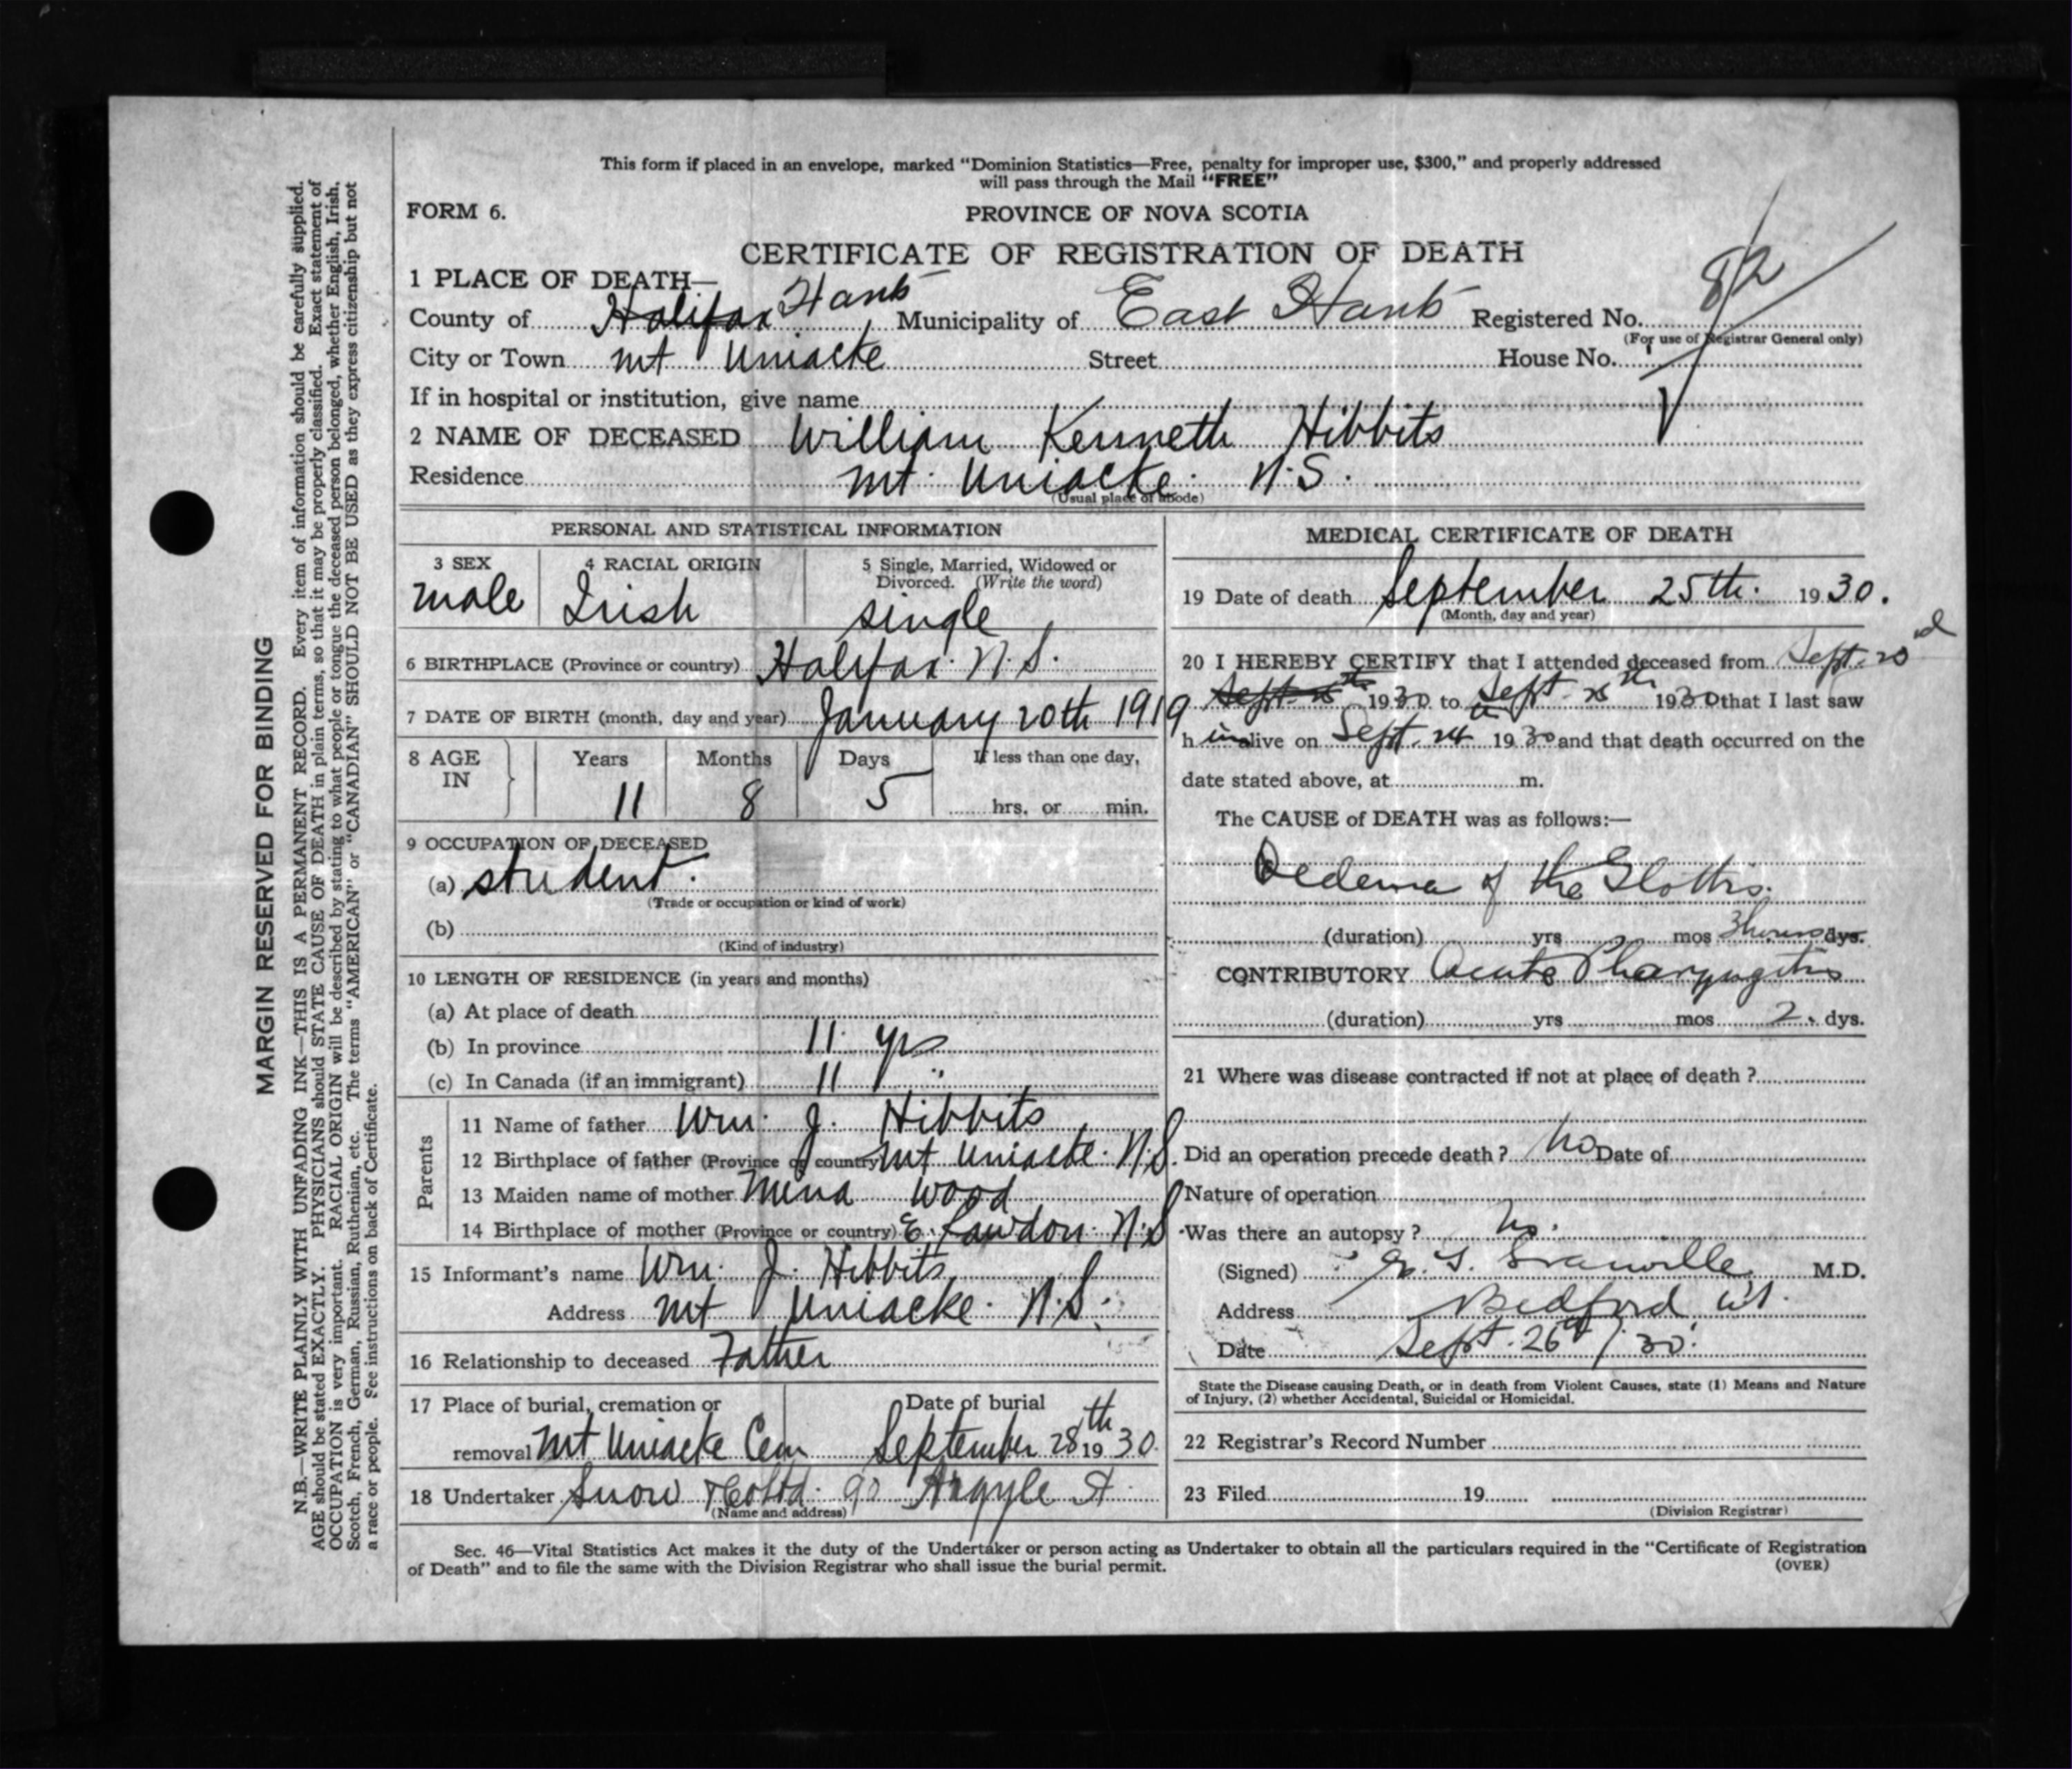 This form if placed in an envelope, marked "Dominion Statistics—Free, penalty for improper use, $300," and properly addressed
will pass through the Mail "FREE"
FORM 6.
PROVINCE OF NOVA SCOTIA
CERTIFICATE OF REGISTRATION OF DEATH
1 PLACE OF DEATH—
County of Halifax Hants Municipality of East Hants Registered No. 82
(For use of Registrar General only)
City or Town Mt Uniacke Street House No.
If in hospital or institution, give name
2 NAME OF DECEASED William Kenneth Hibbits
Residence Mt. Uniacke. N.S.
(Usual place of abode)
PERSONAL AND STATISTICAL INFORMATION
3 SEX 4 RACIAL ORIGIN 5 Single, Married, Widowed or
Divorced. (Write the word)
Male Irish single
6 BIRTHPLACE (Province or country) Halifax. N.S.
7 DATE OF BIRTH (month, day and year) January 20th 1919
8 AGE IN Years Months Days If less than one day,
11 8 5 hrs. or min.
9 OCCUPATION OF DECEASED
(a) student.
(Trade or occupation or kind of work)
(b)
(Kind of industry)
10 LENGTH OF RESIDENCE (in years and months)
(a) At place of death
(b) In province 11 yrs
(c) In Canada (if an immigrant) 11 "
Parents
11 Name of father Wm. J. Hibbits
12 Birthplace of father (Province or country) Mt Uniacke. N.S.
13 Maiden name of mother Mina Wood
14 Birthplace of mother (Province or country) E. Rawdon. N.S
15 Informant's name Wm. J. Hibbits
Address Mt Uniacke. N.S.
16 Relationship to deceased Father
17 Place of burial, cremation or Date of burial
removal Mt Uniacke Cem September 28th 1930.
18 Undertaker Snow & Co Ltd. 90 Argyle St.
(Name and address)
MEDICAL CERTIFICATE OF DEATH
19 Date of death September 25th. 1930.
(Month, day and year)
20 I HEREBY CERTIFY that I attended deceased from Sept.
1930 to Sept. 25th 1930 that I last saw
h im alive on Sept. 24 1930 and that death occurred on the
date stated above, at m.
The CAUSE of DEATH was as follows:—
Oedema of the Glottis.
(duration) yrs mos 3 hours dys.
CONTRIBUTORY Acute Pharyngitis
(duration) yrs mos 2. dys.
21 Where was disease contracted if not at place of death ?
Did an operation precede death ? No Date of
Nature of operation
Was there an autopsy ? No.
(Signed) Granville M.D.
Address Bedford
Date Sept. 26th / 30.
State the Disease causing Death, or in death from Violent Causes, state (1) Means and Nature
of Injury, (2) whether Accidental, Suicidal or Homicidal.
22 Registrar's Record Number
23 Filed 19
(Division Registrar)
Sec. 46—Vital Statistics Act makes it the duty of the Undertaker or person acting as Undertaker to obtain all the particulars required in the "Certificate of Registration
of Death" and to file the same with the Division Registrar who shall issue the burial permit.
(OVER)
MARGIN RESERVED FOR BINDING
N.B.—WRITE PLAINLY WITH UNFADING INK—THIS IS A PERMANENT RECORD. Every item of information should be carefully supplied.
AGE should be stated EXACTLY. PHYSICIANS should STATE CAUSE OF DEATH in plain terms, so that it may be properly classified. Exact statement of
OCCUPATION is very important. RACIAL ORIGIN will be described by stating to what people or tongue the deceased person belonged, whether English, Irish,
Scotch, French, German, Russian, Ruthenian, etc. The terms "AMERICAN" or "CANADIAN" SHOULD NOT BE USED as they express citizenship but not
a race or people. See instructions on back of Certificate.